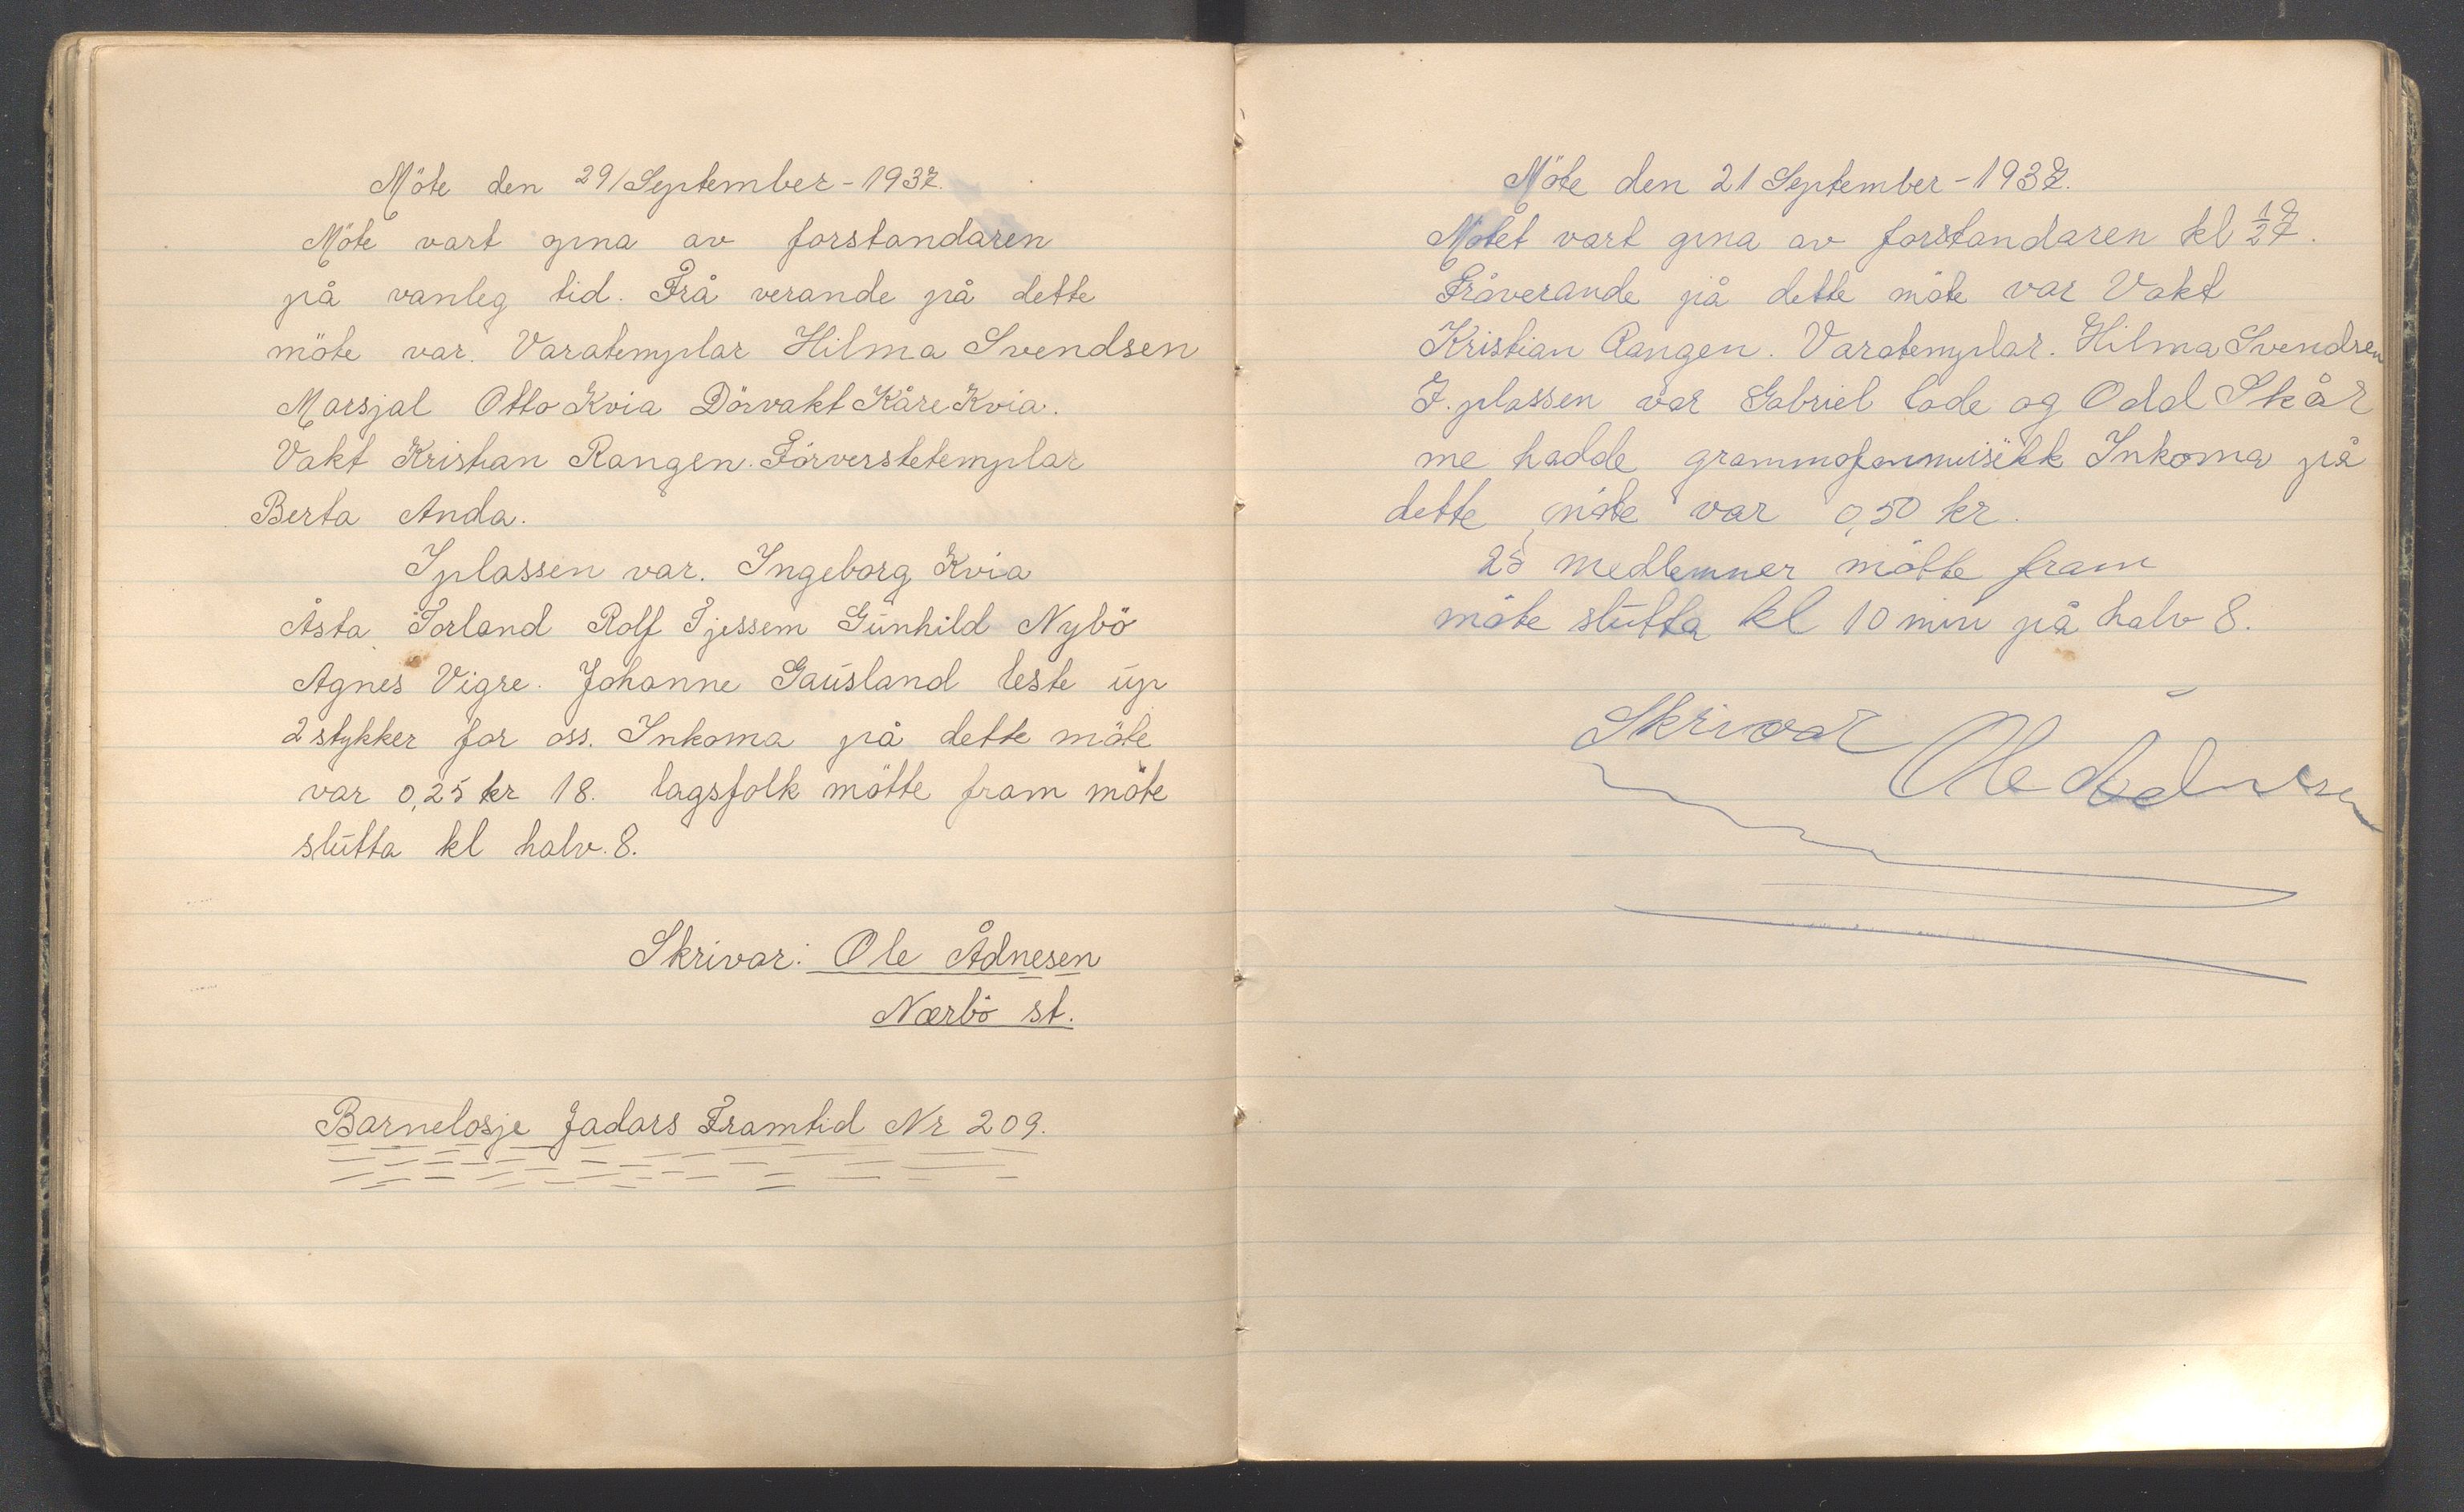 Möte den 29/September-1937.
Möte vart gina av forstandaren
på vanleg tid. Frå verande på dette
möte var. Varatemplar Hilma Svendsen
Marsjal Otto Kvia Dörvakt Kåre Kvia.
Vakt Kristian Rangen. Förverstetemplar
Berta Anda.
Iplassen var. Ingeborg Kvia
Åsta Torland Rolf Tjessem Gunhild Nybö
Agnes Vigre. Johanne Gausland leste up
2 stykker for oss. Inkoma på dette möte
var 0,25 kr 18. lagsfolk mötte fram möte
slutta kl halv. 8.
Skrivar: Ole Ådnesen
Nærbö st.
Barnelosje Jadars Framtid Nr 209.
Möte den 21 September-1937.
Mötet vart gina av forstandaren kl ½ 7.
Fråverande på dette möte var Vakt
Kristian Rangen. Varatemplar. Hilma Svendsen
I. plassen var Gabriel Lode og Odd Skår
me hadde grammofonmusikk Inkoma på
dette möte var 0,50 kr.
25 medlemmer mötte fram
möte slutta kl 10 min på halv 8.
Skrivar Ole Ådnesen